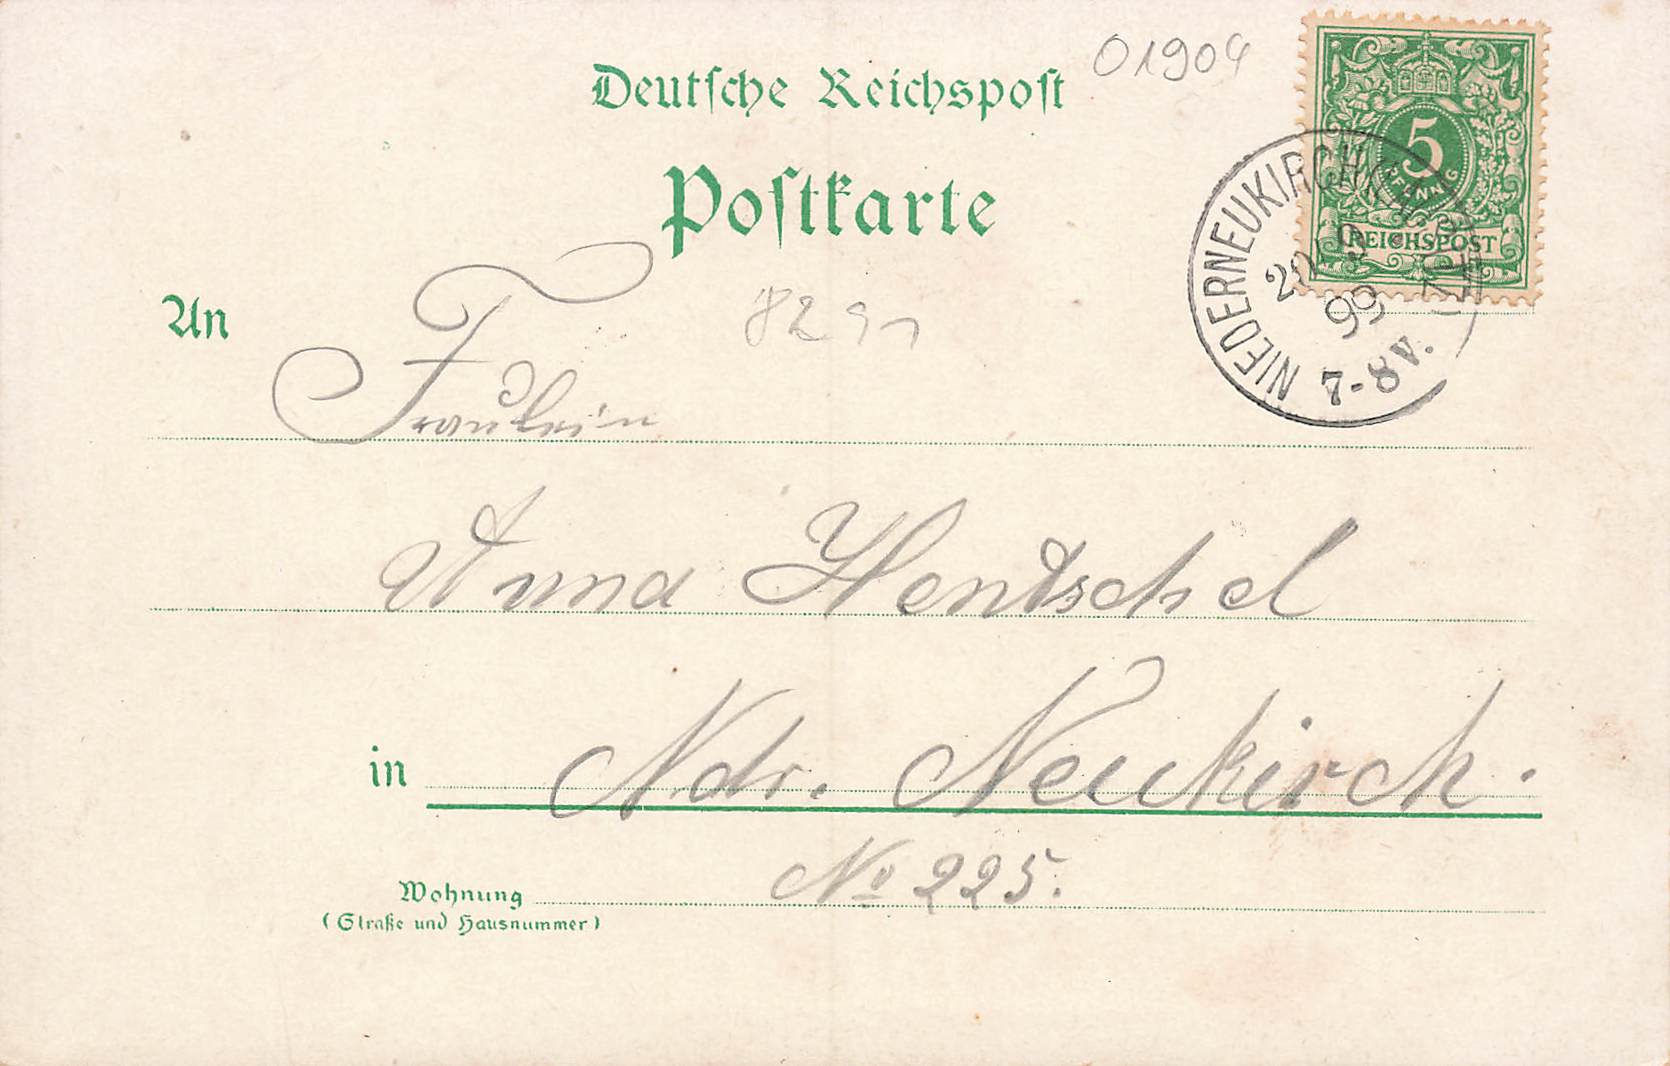 Deutsche Reichspost
01904
5
PFENNIG
REICHSPOST
Postkarte
NIEDERNEUKIRCH
20 9
99
7-8V.
An
Fräulein
Anna Hentschel
in Ndr. Neukirch.
Wohnung No 225.
(Straße und Hausnummer)